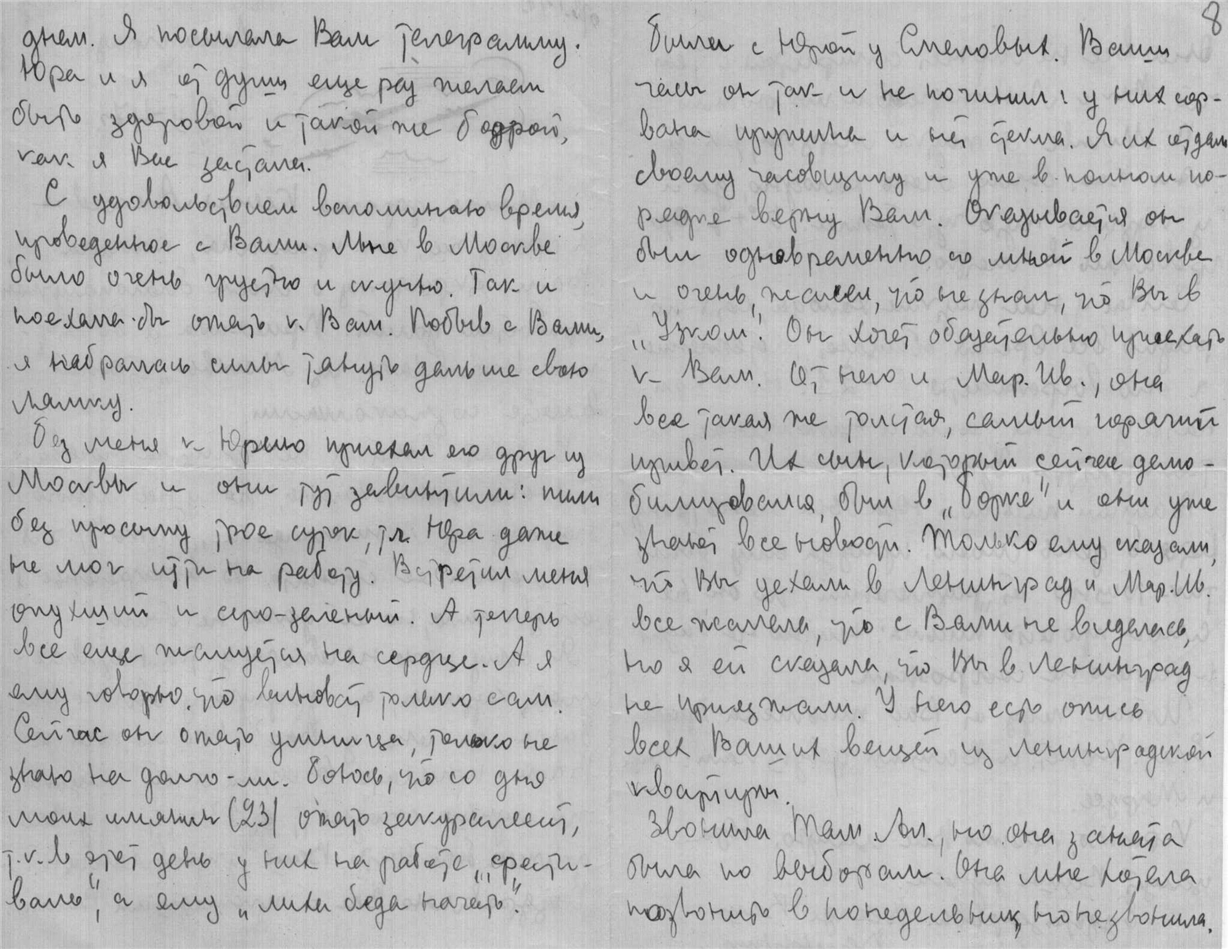 днем. Я посылала Вам телеграмму.
Юра и я от души еще раз желаем
быть здоровой и такой же бодрой,
как я Вас застала.
С удовольствием вспоминаю время,
проведенное с Вами. Мне в Москве
было очень грустно и скучно. Так и
поехала-бы опять к Вам. Побыв с Вами,
я набралась силы тянуть дальше свою
лямку.
Без меня к Юрию приехал его друг из
Москвы и они тут завинтили: пили
без просыпу трое суток, т.ч. Юра даже
не мог итти на работу. Встретил меня
опухший и серо-зеленый. А теперь
все еще жалуется на сердце. А я
ему говорю, что виноват только сам.
Сейчас он опять умница, только не
знаю на долго-ли. Боюсь, что со дня
моих имянин (23) опять закуралесит,
т.к. в этот день у них на работе „фести-
валь", а ему „лиха беда начать".
8
была с Юрой у Смеловых. Ваши
часы он так и не починил: у них сор-
вана пружина и нет стекла. Я их отдам
своему часовщику и уже в полном по-
рядке верну Вам. Оказывается он
был одновременно со мной в Москве
и очень, жалел, что не знал, что Вы в
„Узком". Он хочет обязательно приехать
к Вам. От него и Мар. Ив., она
все такая же толстая, самый горячий
привет. Их сын, который сейчас демо-
билизовался, был в „Борке" и они уже
знают все новости. Только ему сказали,
что Вы уехали в Ленинград и Мар. Ив.
все жалела, что с Вами не виделась,
но я ей сказала, что Вы в Ленинград
не приезжали. У него есть опись
всех Ваших вещей из Ленинградской
квартиры.
Звонила Там. Ал., но она занята
была по выборам. Она мне хотела
позвонить в понедельник, но не звонила.